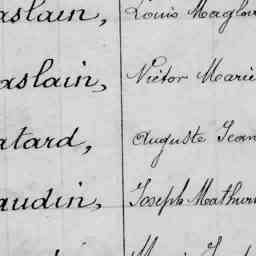 aslain, Louis Maglo
aslain, Victor Marie
atard, Auguste Jean
audin, Joseph Mathuri